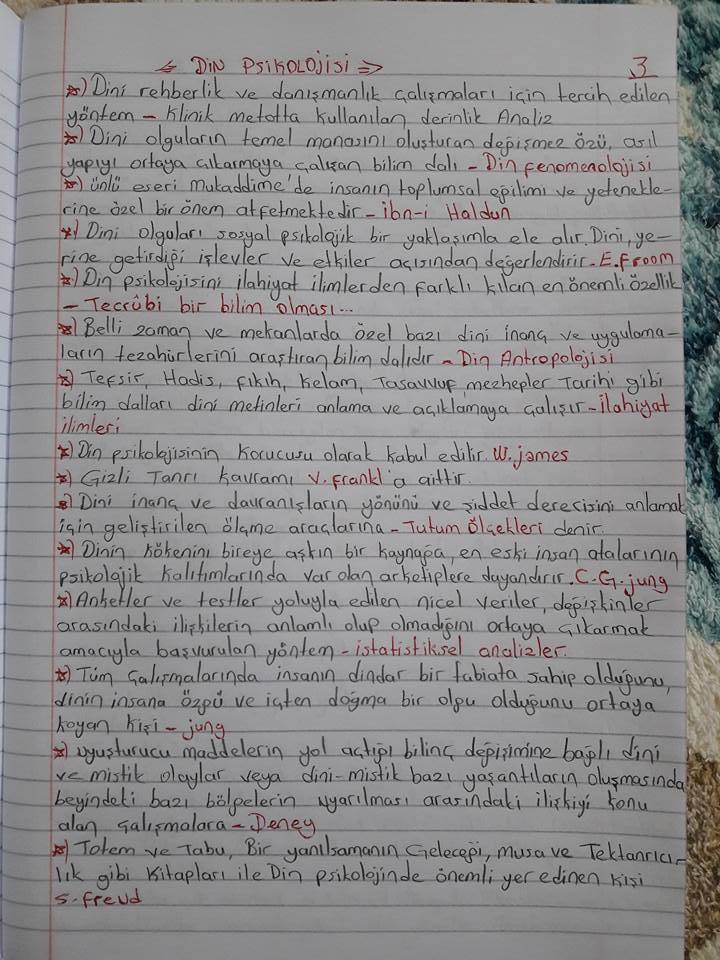 ← DİN PSİKOLOJİSİ → 3
*) Dini rehberlik ve danışmanlık çalışmaları için tercih edilen
yöntem – Klinik metotta kullanılan derinlik Analiz
*) Dini olguların temel manasını oluşturan değişmez özü, asıl
yapıyı ortaya çıkarmaya çalışan bilim dalı – Din fenomenolojisi
*) ünlü eseri mukaddime'de insanın toplumsal eğilimi ve yetenekle-
rine özel bir önem atfetmektedir – ibn-i Haldun
*) Dini olguları sosyal psikolojik bir yaklaşımla ele alır. Dini, ye-
rine getirdiği işlevler ve etkiler açısından değerlendirir. – E. froom
*) Din psikolojisini ilahiyat ilimlerden farklı kılan en önemli özellik
– Tecrûbi bir bilim olması...
*) Belli zaman ve mekanlarda özel bazı dini inanç ve uygulama-
ların tezahürlerini araştıran bilim dalıdır – Din Antropolojisi
*) Tefsir, Hadis, fıkıh, kelam, Tasavvuf, mezhepler Tarihi gibi
bilim dalları dini metinleri anlama ve açıklamaya çalışır – ilahiyat
ilimleri
*) Din psikolojisinin korucusu olarak kabul edilir. W. james
*) Gizli Tanrı kavramı V. frankl'a aittir.
*) Dini inanç ve davranışların yönünü ve şiddet derecisini anlamak
için geliştirilen ölçme araçlarına – Tutum Ölçekleri denir.
*) Dinin kökenini bireye aşkın bir kaynağa, en eski insan atalarının
psikolojik kalıtımlarında var olan arketiplere dayandırır. C. G. jung
*) Anketler ve testler yoluyla edilen nicel veriler, değişkinler
arasındaki ilişkilerin anlamlı olup olmadığını ortaya çıkarmak
amacıyla başvurulan yöntem – istatistiksel analizler.
*) Tüm çalışmalarında insanın dindar bir tabiata sahip olduğunu,
dinin insana özgü ve içten doğma bir olgu olduğunu ortaya
koyan kişi – jung
*) uyuşturucu maddelerin yol açtığı bilinç değişimine bağlı dini
ve mistik olaylar veya dini-mistik bazı yaşantıların oluşmasında
beyindeki bazı bölgelerin uyarılması arasındaki ilişkiyi konu
alan çalışmalara – Deney
*) Totem ve Tabu, Bir yanılsamanın Geleceği, musa ve Tektanrıcı-
lık gibi kitapları ile Din psikolojinde önemli yer edinen kişi
S. freud